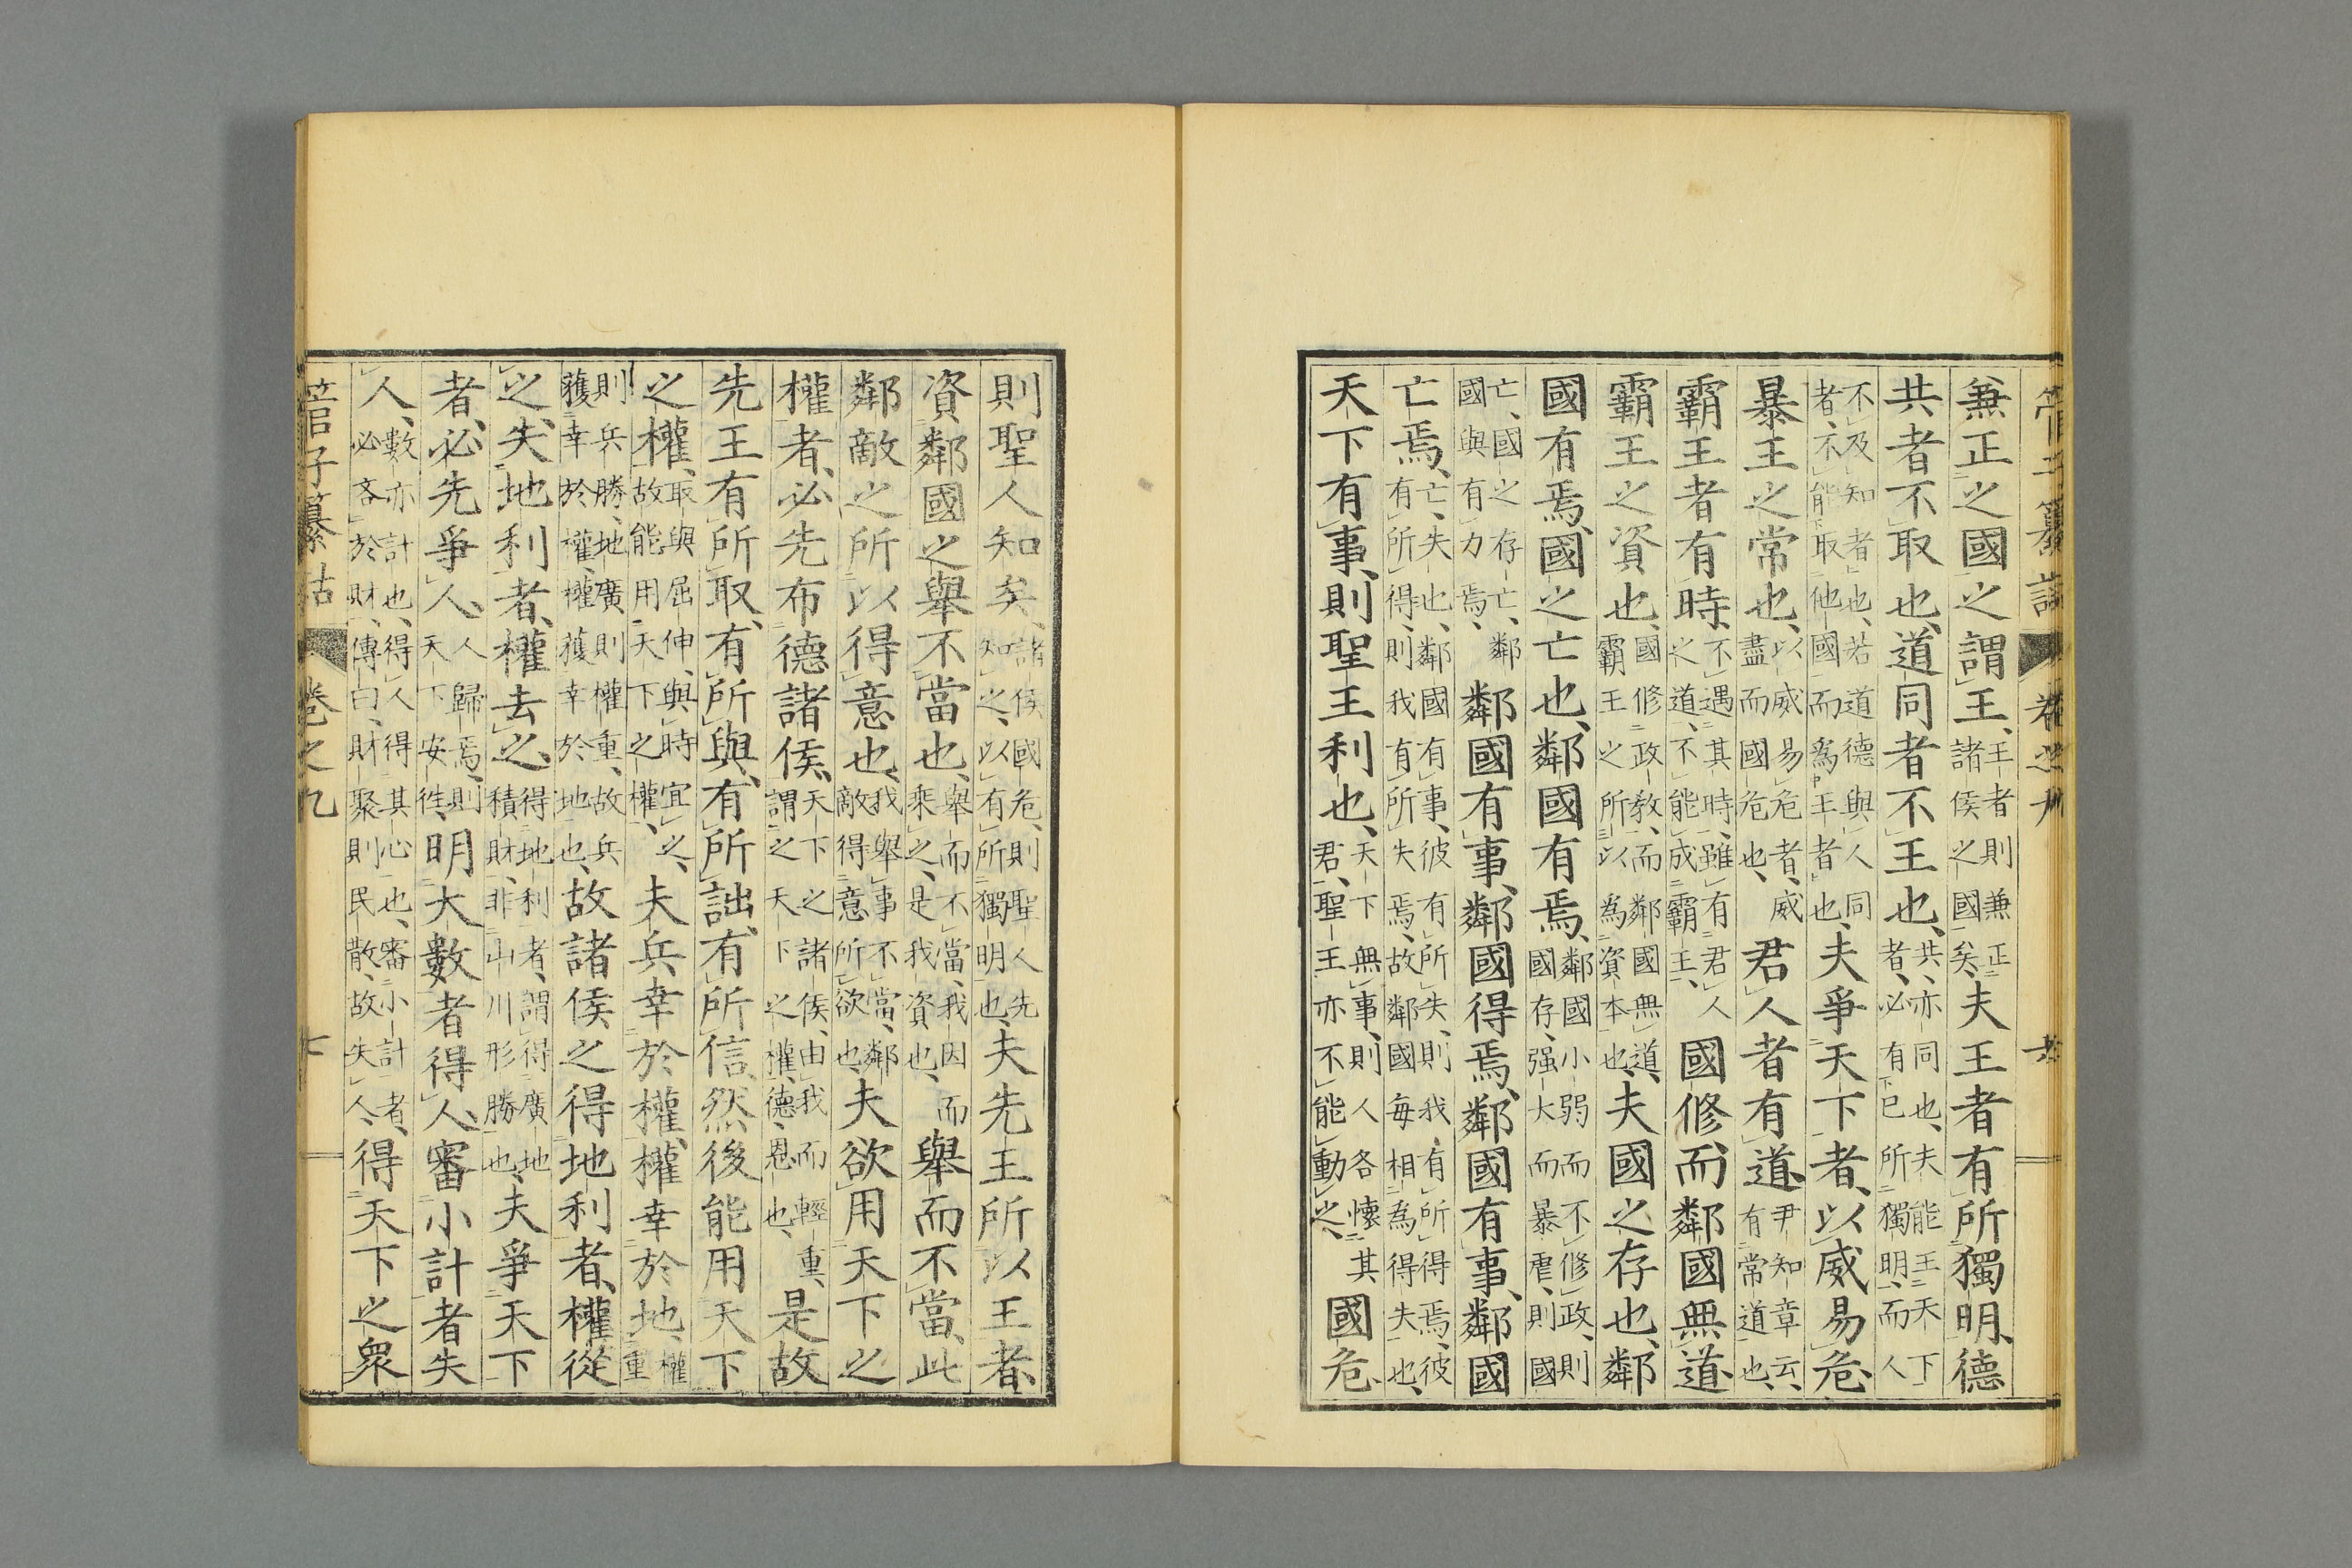 兼正之國之謂王、王者則兼正諸侯之國矣、夫王者有所獨明、德
共者不取也、道同者不王也、共、亦同也、夫能王天下者、必有已所獨明、而人
不及知者也、若道德與人同者、不能取他國而爲王者也、夫爭天下者、以威易危、
暴王之常也、以威易危者、威盡而國危也、君人者有道、尹知章云、有常道也、
霸王者有時、不遇其時、雖有君人之道、不能成霸王、國修而鄰國無道、
霸王之資也、國修政教、而鄰國無道、霸王之所以為資本也、夫國之存也、鄰
國有焉、國之亡也、鄰國有焉、鄰國小弱而不修政、則國存、强大而暴虐、則國
亡、國之存亡、鄰國與有力焉、鄰國有事、鄰國得焉、鄰國有事、鄰國
亡焉、亡、失也、鄰國有事、彼有所失、則我有所得、則我有所失焉、故鄰國每相為得失也、有所得焉、彼
天下有事、則聖王利也、天下無事、則人各懷其君、聖王亦不能動之、國危、
則聖人知矣、諸侯國危、則聖人先知之、以有所獨明也、夫先王所以王者、
資鄰國之舉不當也、舉而不當、我因而乘之、是我資也、舉而不當、此
鄰敵之所以得意也、我舉事不當、鄰敵得意所欲也、夫欲用天下之
權者、必先布德諸侯、天下之諸侯、由我而輕重、謂之天下之權、德、恩也、是故
先王有所取、有所與、有所詘、有所信、然後能用天下
之權、取與屈伸、與時宜之、故能用天下之權、夫兵幸於權、權幸於地、權重
則兵勝、地廣則權重、故兵獲幸於權、權獲幸於地也、故諸侯之得地利者、權從
之、失地利者、權去之、得地利者、謂得廣地積財、非山川形勝也、夫爭天下
者、必先爭人、人歸焉、則天下安徃、明大數者得人、審小計者失
人、數亦計也、得人得其心也、審小計者、必吝於財、傳曰、財聚則民散、故失人、得天下之衆
管子纂詁 卷之九